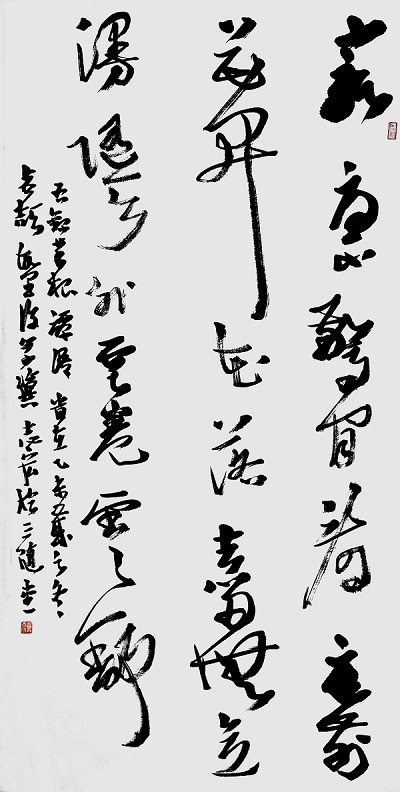 寵辱不驚閒看庭前
花開花落去留無意
漫隨天外雲卷雲舒
菜根譚語 乙未 之冬
於三隨堂